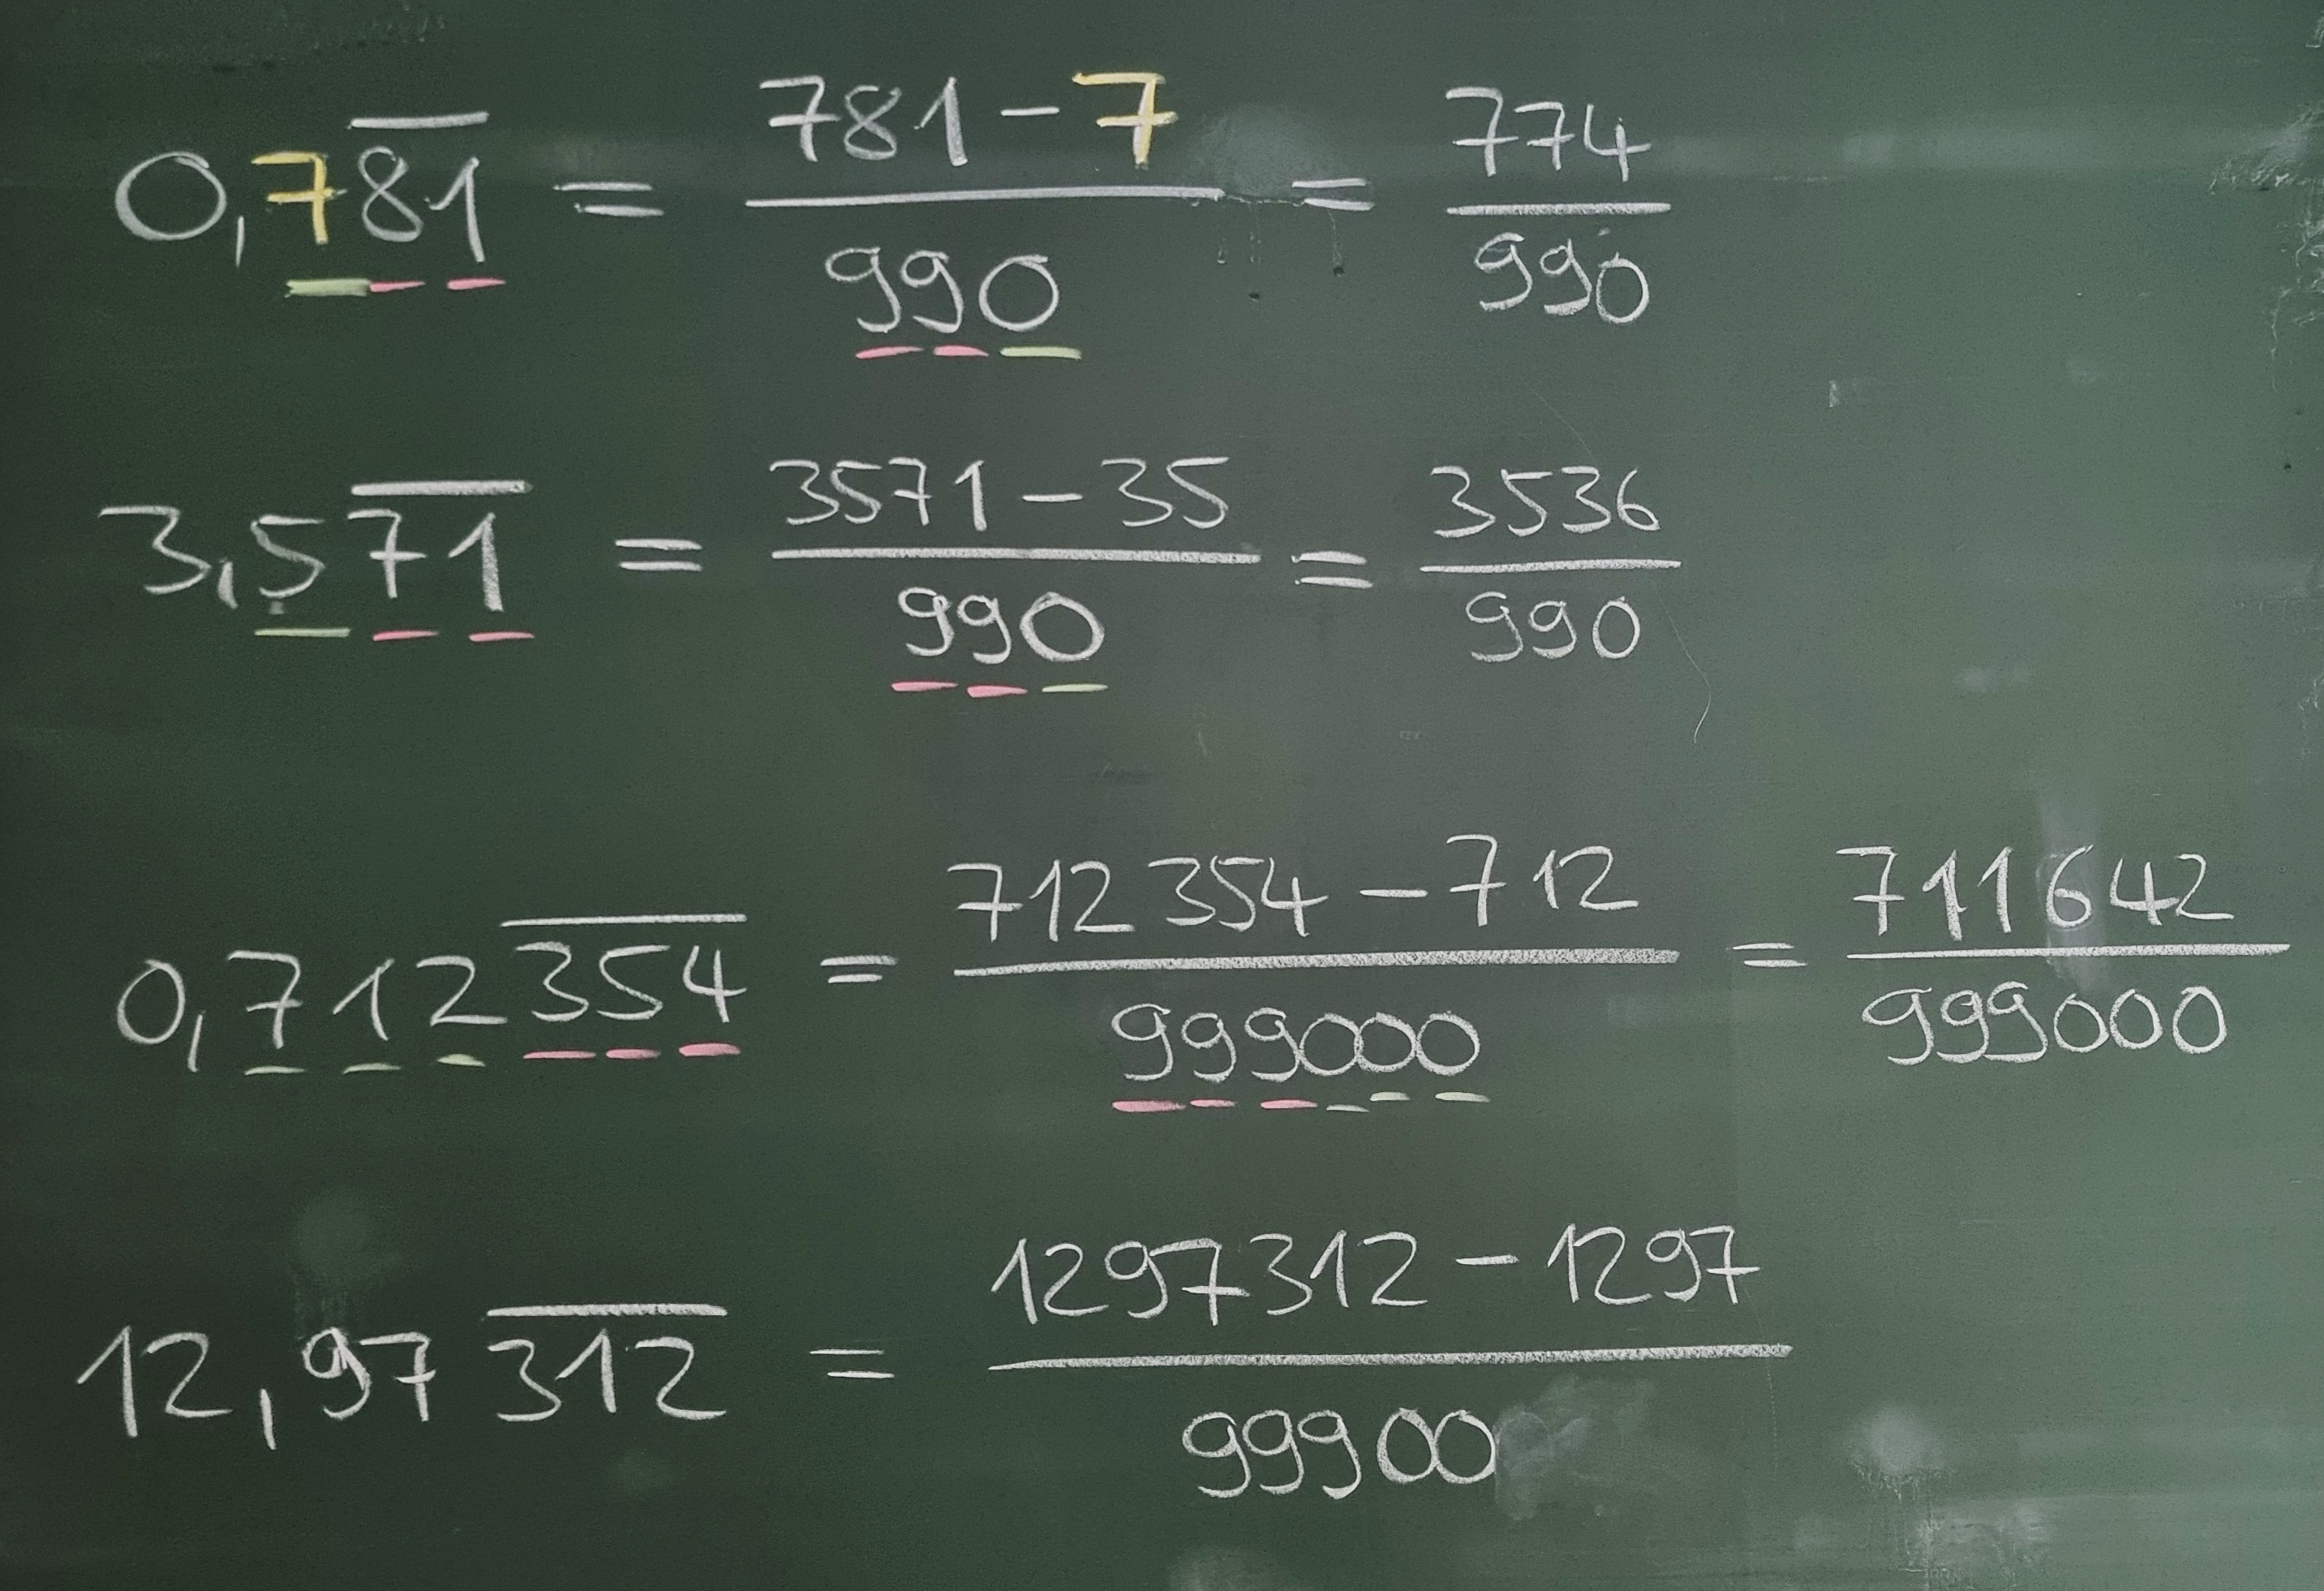 0,78̅1̅ = (781 − 7)/990 = 774/990
3,57̅1̅ = (3571 − 35)/990 = 3536/990
0,7123̅5̅4̅ = (712354 − 712)/999000 = 711642/999000
12,973̅1̅2̅ = (1297312 − 1297)/99900